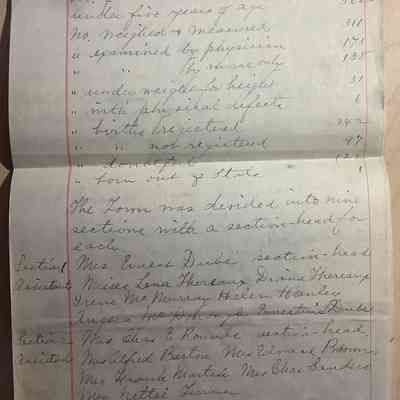 under five years of age
No. weighed & measured 318
" examined by physician 175
" " by nurse only 135
" under weight for height 51
" with physical defects 6
" births registered 242
" " not registered 97
" doubtful
" born out of State 1
The Town was devided into nine
sections with a section-head for
each.
Section 1 Mrs Ernest Dube section-head
Assistants Misses Lena Thereaux, Diana Thereaux
Irene McMurray Helen Hanley
Ernestine Dube
Section 2 Mrs Chas E section-head
Assistants Mrs Alfred Mrs Edward
Mrs Frank Mrs Chas
Mrs Nettie